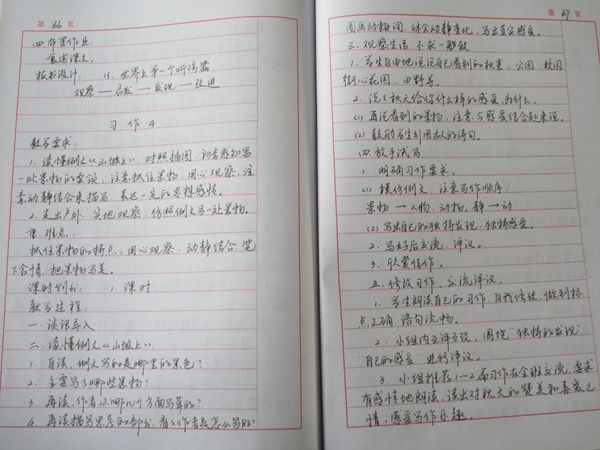 第 66 页
四.布置作业:
复述课文。
板书设计: 15. 世界上第一个听诊器
观察—启发—发现—改进
习作4
教学要求:
1. 读懂例文《山坡上》,对照插图,初步感知写
一处景物的要领,注意抓住景物,用心观察,注
意动静结合来描写,表达一定的思想感情。
2. 走出户外,实地观察,仿照例文写一处景物。
重、难点:
抓住景物的特点,用心观察,动静结合,笔
下含情,把景物写美。
课时划分: 1课时
教学过程:
一.谈话导入
二.读懂例文《山坡上》
1. 自读,例文写的是哪里的景色?
2. 主要写了哪些景物?
3. 再读,作者从哪几个方面写草的?
4. 再读描写思念的部分,看看作者是怎么写的?
第 67 页
圈画动物词,体会动静变化,写出真实感受。
三.观察生活,不求一致
1. 学生自由地说说自己看到的秋景,公园、校园
街心花园、田野等。
2. 说说秋天给你什么样的感受,为什么。
(1) 再说看到的景物,注意与感受结合起来说。
(2) 鼓励学生引用古人的诗句。
四.放手试写
1. 明确习作要求。
(1) 模仿例文,注意写作顺序
景物→人物,动物,静→动
(2) 写出自己的独特发现,独特感受。
2. 写好后交流,评议。
3. 欣赏佳作。
五.修改习作,交流评议。
1. 学生朗读自己的习作,自我修改,做到标
点正确,语句流畅。
2. 小组内互评互改,围绕"独特的发现"
"自己的感受"进行评议。
3. 小组推荐1—2篇习作在全班交流,要求
有感情地朗读,读出对秋天的赞美和喜爱之
情,感受写作乐趣。